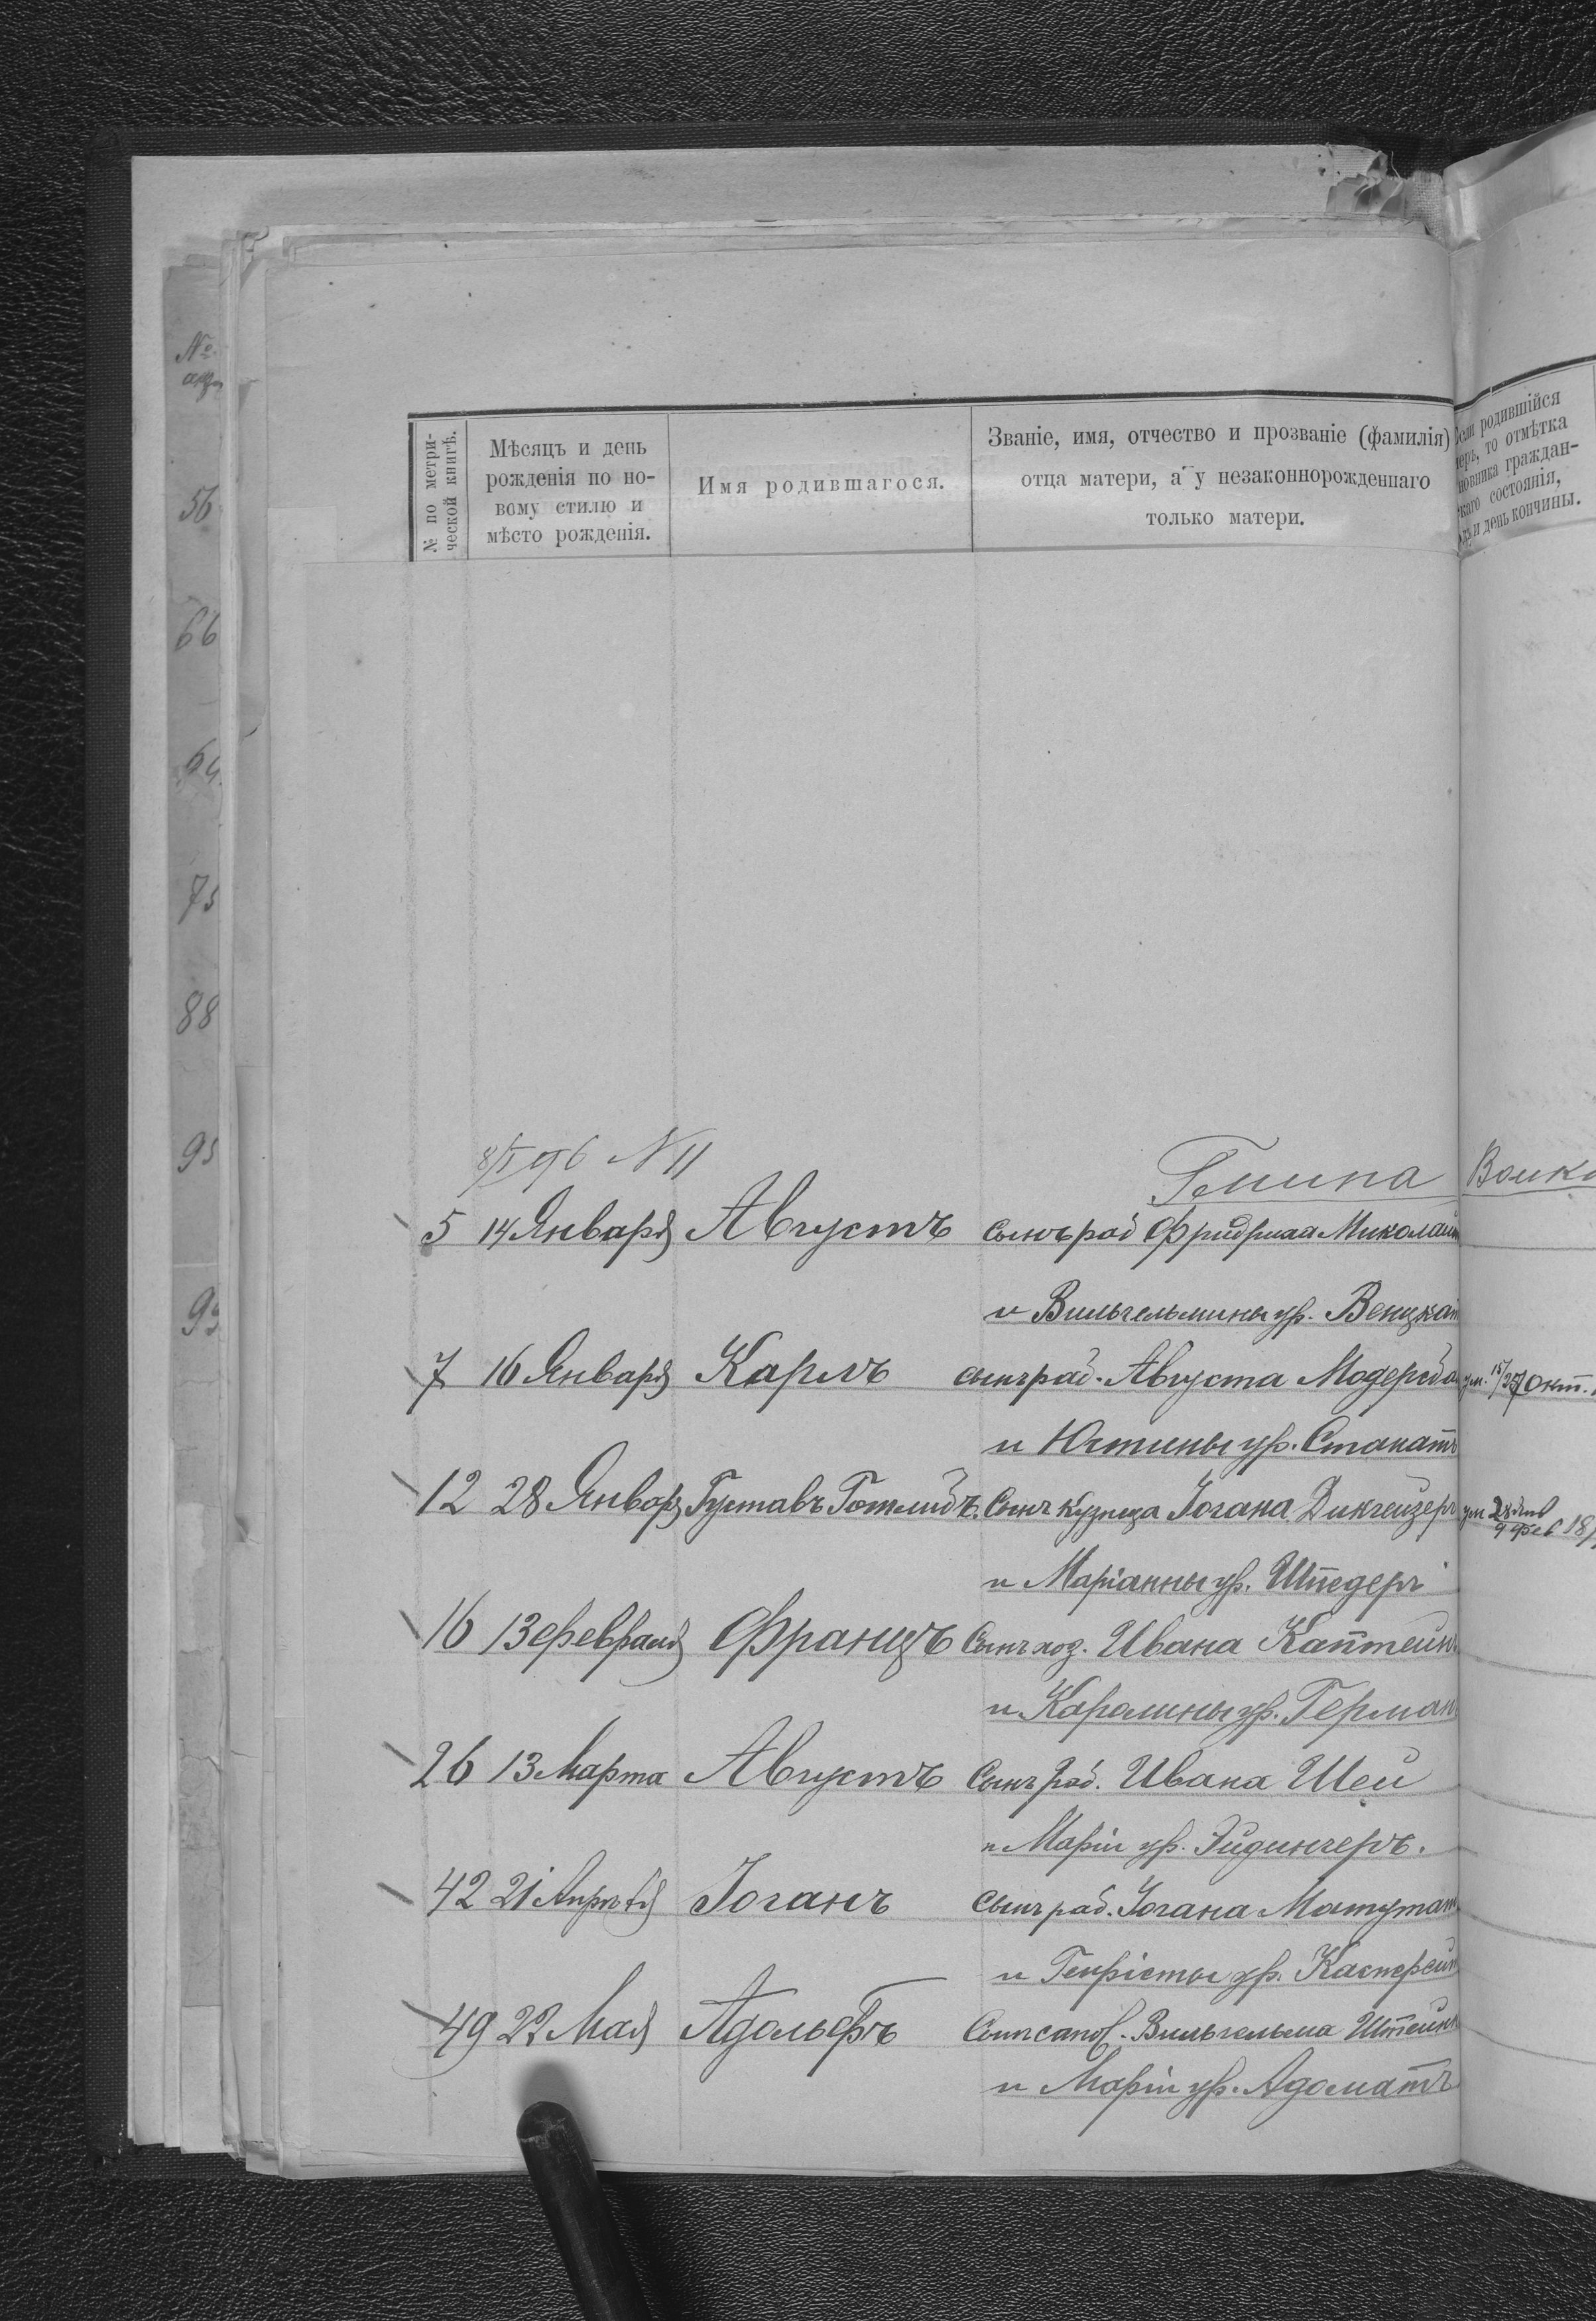 №
56
66
64
75
88
95
99
№ по метри-
ческой книгѣ.
Мѣсяцъ и день
рожденія по но-
вому стилю и
мѣсто рожденія.
Имя родившагося.
Званіе, имя, отчество и прозваніе (фамилія)
отца матери, а у незаконнорожденнаго
только матери.
родившійся
то отмѣтка
граждан-
состоянія,
и день кончины.
N 11
Гмина
5 14 Января Августъ сынъ раб Фридриха Миколайт
и Вильгельмины ур.
7 16 Января Карлъ сынъ раб. Августа ум. 15/27 Окт.
и Юстины ур. Станатъ
12 28 Январ Густавъ Готлибъ. Сынъ кузнеца Іогана ум 28 Янв
9 Фев 18
и Маріанны ур. Шпедеръ
16 13 февраля Францъ Сынъ хоз. Ивана Каптейнъ
и Каролины ур. Герман
26 13 Марта Августъ Сынъ раб. Ивана Шей
и Маріи ур. Эйдингеръ.
42 21 Апрѣля Іоганъ Сынъ раб. Іогана Матутат
и Генріеты ур. Касперейт
49 22 Мая Адольфъ Сынъ сапож. Вильгельма Штейнк
и Маріи ур. Адоматъ